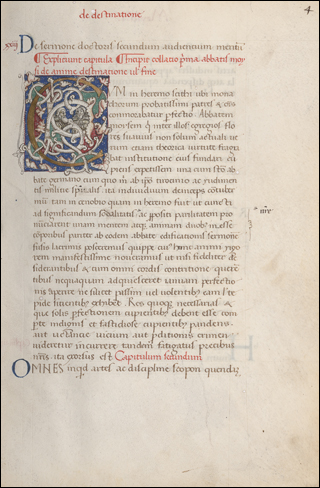 de destinatione
4
xxiii De sermone doctoris secundum audientium meritū
Explicunt capitula. Incipit collatio prīa abbatis moy
si de animę destinatione uel fine
M in heremo scithi ubi mona
chorum probatissimi patres & oīs
commorabatur pfectio Abbatem
moysem q̄ inter illos egregios flo
res suauius non solum actuali ue
rum etiam theorica uirtute fragra
bat institutione eius fundari cu
piens expetissem una cum scō ab
bate germano cum quo m̄ ab ipō tirocinio ac rudimen
tis militię spūtalis ita indiuiduum deinceps cōtuber
nium tam in cenobio quam in heremo fuit ut cuncti
ad significandum sodalitatis ac ppositi parilitatem pro
nūciarent unam mentem atq; animam duob; inesse
corporibus pariter ab eodem abbate edificationis sermonem
fusis lacrimis posceremus quippe cuius hunc animi rigo
rem manifestissime noueramus ut nisi fideliter de
siderantibus & cum omni cordis contritione quęrē
tibus nequaquam adquiesceret ianuam perfectio
nis aperire ne scilicet passim uel nolentibus eam l' te
pide sitientibus exhibēs Res quoque necessarias &
que solis pfectionem cupientibus debent esse com
ptę indignis et fastidiose cupientibus pandens
aut iactantię uitium aut pditionis crimen
uideretur incurrere tandem fatigatus precibus
nr̄is ita exorsus est Capitulum secundum
OMNES inqid artes ac discipline scopon quendā